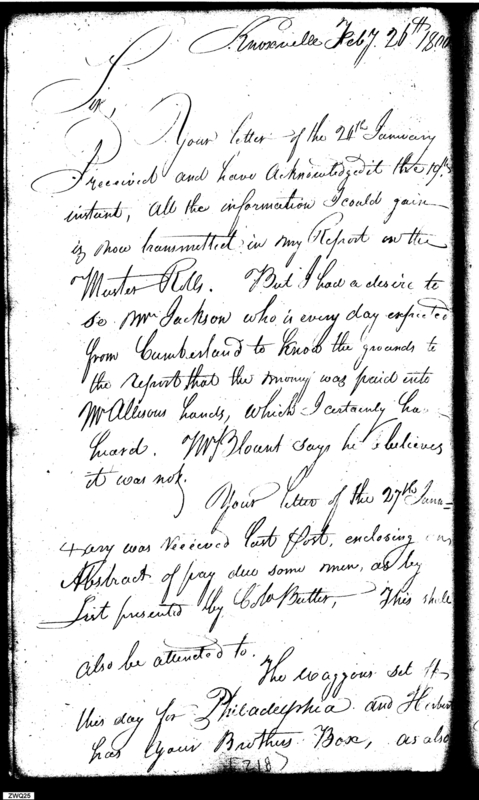 Knoxville Feby. 26th 1800
Sir,
Your letter of the 24th January
I received and have acknowledged it the 19th
instant, all the information I could gain
is now transmitted in my Report on the
Muster Rolls. But I had a desire to
se Mr Jackson who is every day expected
from Cumberland to know the grounds to
the report that the money was paid into
Mr Allisons hands, which I certainly ha
heard. Mr Blount says he believes
it was not.
Your letter of the 27th Janu=
ary was received last Post, enclosing an
Abstract of pay due some men, as by
List presented by Colo Butler, This shall
also be attended to.
The waggons set
this day for Philadelphia and
has your Brothers Box, as also
ZWQ25